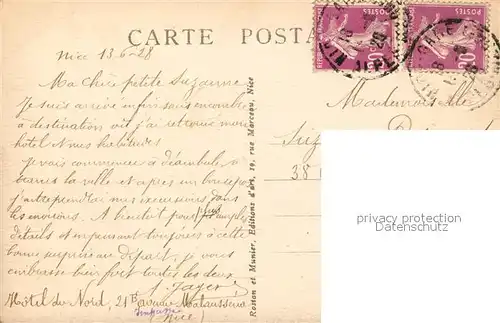 CARTE POSTALE
POSTES
POSTES
Nice 13-6-28
Ma chère petite Suzanne
Je suis arrivé enfin sans encombre
à destination où j'ai retrouvé mon
hôtel et mes habitudes
Je vais commencer à déambuler
travers la ville et après un bon repos
j'entreprendrai mes excursions dans
les environs. A bientôt pour plus amples
détails et en pensant toujours à cette
bonne surprise au départ, je vous
embrasse bien fort toutes les deux
Hôtel du Nord, 21B avenue Malaussena
Impasse
Nice
Rostan et Munier, Editions d'art, 19, rue Marceau, Nice
Mademoiselle
Suz
38
privacy protection